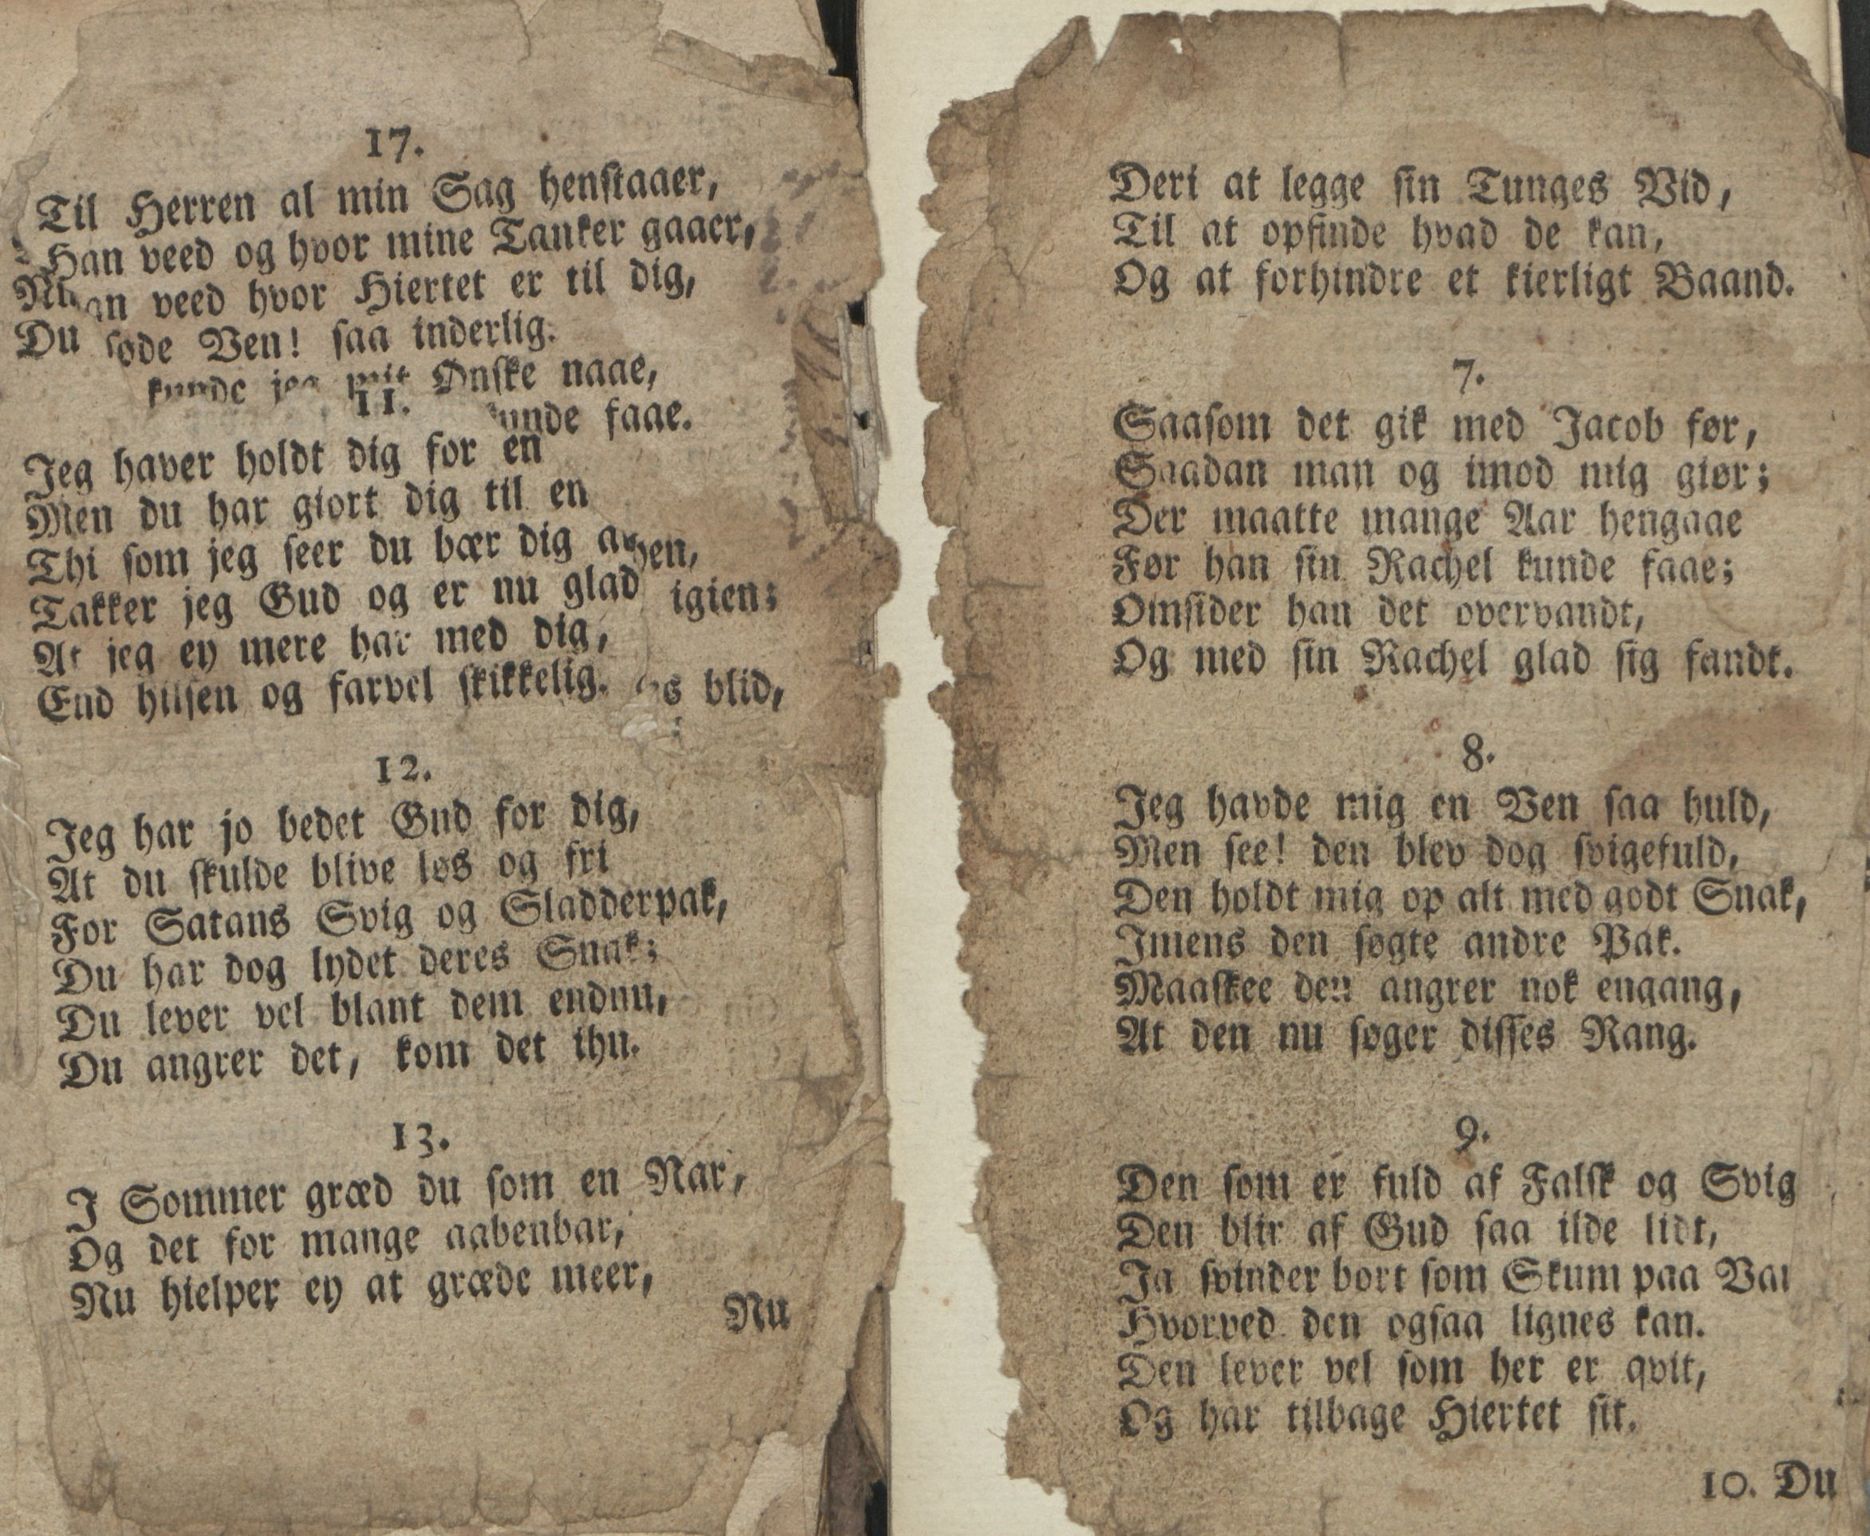 17.
Til Herren al min Sag henstaaer,
Han veed og hvor mine Tanker gaaer,
an veed hvor Hiertet er til dig,
Du søde Ven! saa inderlig.
kunde jeg mit Ønske naae,
kunde faae.
11.
Jeg haver holdt dig for en
Men du har giort dig til en
Thi som jeg seer du bær dig
Takker jeg Gud og er nu glad igien;
At jeg ey mere har med dig,
End hilsen og farvel skikkelig. blid,
12.
Jeg har jo bedet Gud for dig,
At du skulde blive løs og fri
For Satans Svig og Sladderpak,
Du har dog lydet deres Snak;
Du lever vel blant dem endnu,
Du angrer det, kom det ihu.
13.
I Sommer græd du som en Nar,
Og det for mange aabenbar,
Nu hielper ey at græde meer,
Nu
Deri at legge sin Tunges Vid,
Til at opfinde hvad de kan,
Og at forhindre et kierligt Baand.
7.
Saasom det gik med Jacob før,
Saadan man og imod mig giør;
Der maatte mange Aar hengaae
Før han sin Rachel kunde faae;
Omsider han det overvandt,
Og med sin Rachel glad sig fandt.
8.
Jeg havde mig en Ven saa huld,
Men see! den blev dog svigefuld,
Den holdt mig op alt med godt Snak,
Imens den søgte andre Pak.
Maaskee den angrer nok engang,
At den nu søger disses Rang.
9.
Den som er fuld af Falsk og Svig
Den blir af Gud saa ilde lidt,
Ja svinder bort som Skum paa Van
Hvorved den ogsaa lignes kan.
Den lever vel som her er qvit,
Og har tilbage Hiertet sit.
10. Du